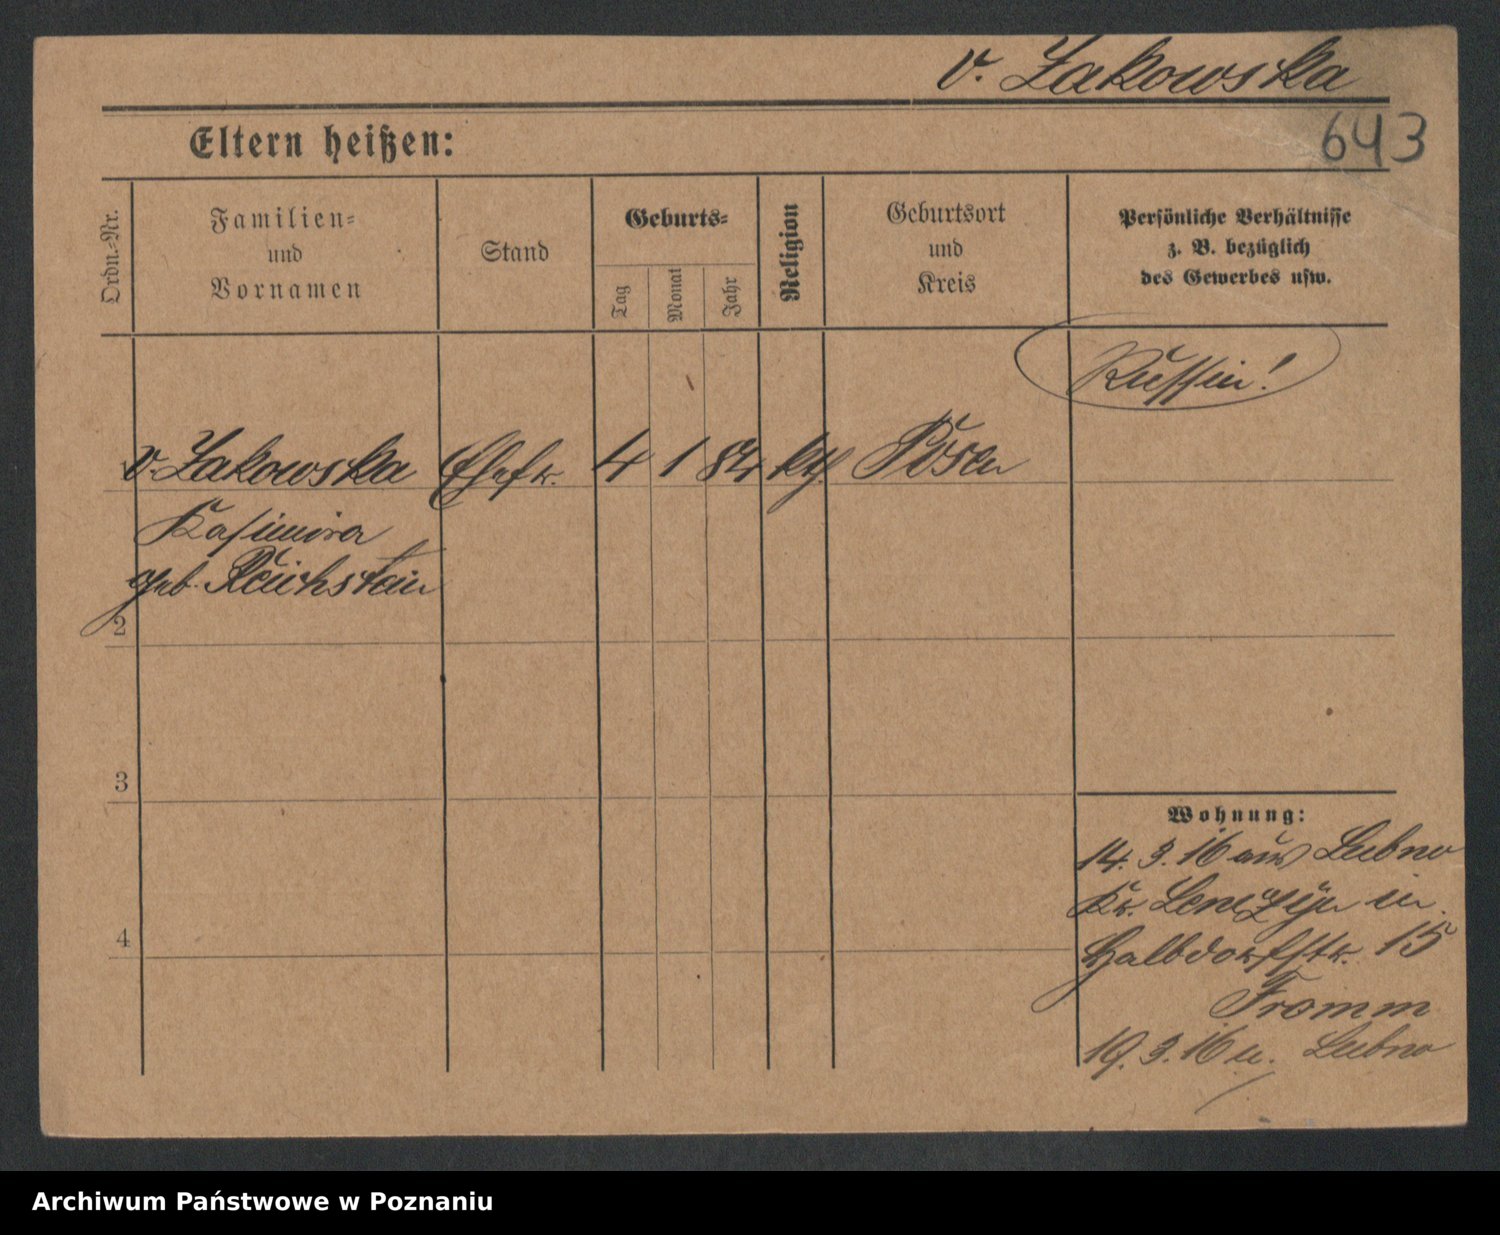 v. Zakowska
643
Eltern heißen:
Ordn.-Nr.
Familien-
und
Vornamen
Stand
Geburts-
Tag
Monat
Jahr
Religion
Geburtsort
und
Kreis
Persönliche Verhältnisse
z. B. bezüglich
des Gewerbes usw.
Russin!
v. Zakowska Ehefr. 4 1 84 kth. Posen
Kasimira
geb. Reichstein
2
3
4
Wohnung:
14. 3. 16 aus Lubno
Kr. in
Halbdorfstr. 15
Fromm
19. 3. 16 n. Lubno
Archiwum Państwowe w Poznaniu